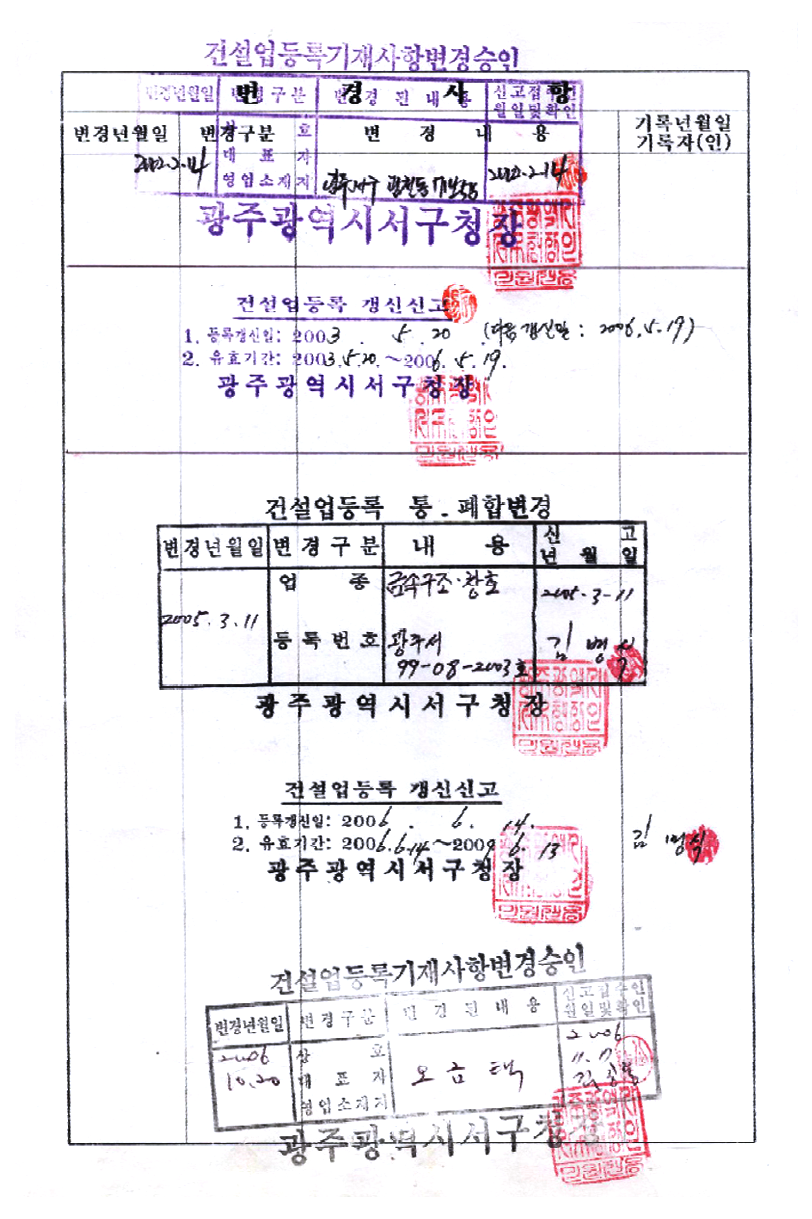 건설업등록기재사항변경승인
변 경 사 항
변경년월일 변경구분 변경된내용 신고접수인
월일및확인
변경년월일 변경구분 변 경 내 용 기록년월일
기록자(인)
상 호
대 표 자
2002.2.14 2002.2.14
영업소재지 광주서구 광천동
광주광역시서구청장
건설업등록 갱신신고
1. 등록갱신일: 2003. 5. 20 (다음갱신일 : 2006.5.19)
2. 유효기간: 2003.5.20.~2006.5.19.
광주광역시서구청장
건설업등록 통.폐합변경
변경년월일 변경구분 내 용 신 고
년 월 일
업 종 금속구조·창호 2005.3-11
2005.3.11
등록번호 광주서 김
99-08-2003호
광주광역시서구청장
건설업등록 갱신신고
1. 등록갱신일: 2006. 6. 14.
2. 유효기간: 2006.6.14~2009.6.13 김
광주광역시서구청장
건설업등록기재사항변경승인
변경년월일 변경구분 변경된내용 신고접수인
월일및확인
2006 상 호 2006
10.20 대 표 자 오금택 11.
영업소재지
광주광역시서구청장